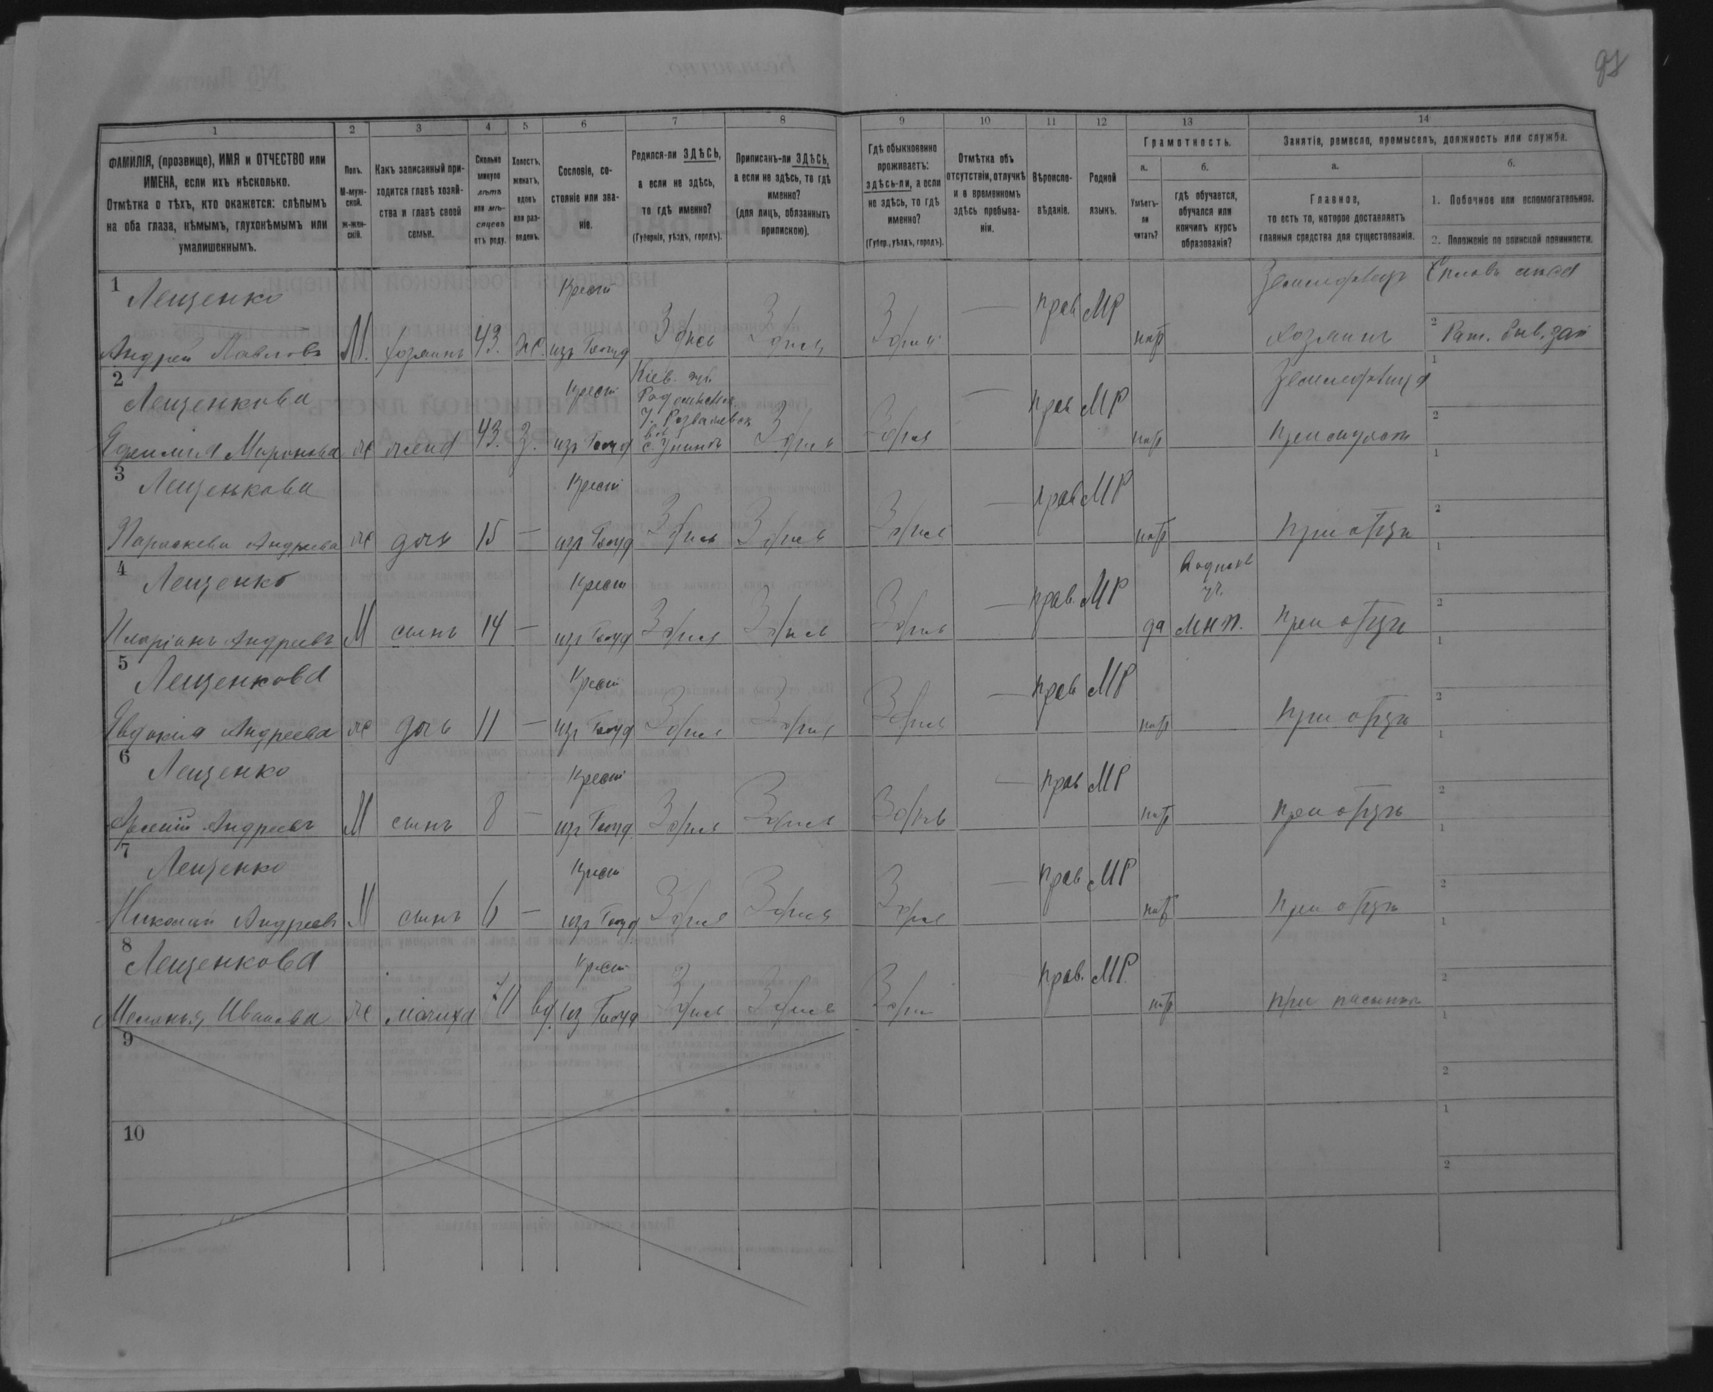 98
1 2 3 4 5 6 7 8 9 10 11 12 13 14
ФАМИЛІЯ, (прозвище), ИМЯ и ОТЧЕСТВО или ИМЕНА, если ихъ нѣсколько.
Отмѣтка о тѣхъ, кто окажется: слѣпымъ на оба глаза, нѣмымъ, глухонѣмымъ или умалишеннымъ.
Полъ.
М-мужской.
ж-женскій.
Какъ записанный приходится главѣ хозяйства и главѣ своей семьи.
Сколько минуло лѣтъ или мѣсяцевъ отъ роду.
Холостъ, женатъ, вдовъ или разведенъ.
Сословіе, состояніе или званіе.
Родился-ли ЗДѢСЬ, а если не здѣсь, то гдѣ именно?
(Губернія, уѣздъ, городъ).
Приписанъ-ли ЗДѢСЬ, а если не здѣсь, то гдѣ именно?
(для лицъ, обязанныхъ припискою).
Гдѣ обыкновенно проживаетъ: здѣсь-ли, а если не здѣсь, то гдѣ именно?
(Губер., уѣздъ, городъ).
Отмѣтка объ отсутствіи, отлучкѣ и о временномъ здѣсь пребываніи.
Вѣроисповѣданіе.
Родной языкъ.
Грамотность.
а.
Умѣетъ-ли читать?
б.
гдѣ обучается, обучался или кончилъ курсъ образованія?
Занятіе, ремесло, промыселъ, должность или служба.
а.
Главное,
то есть то, которое доставляетъ главныя средства для существованія.
б.
1. Побочное или вспомогательное.
2. Положеніе по воинской повинности.
1 Лещенко Крест Земледѣлецъ
Андрей Павловъ М. хозяинъ 43. ж. изъ Госуд Здѣсь Здѣсь Здѣсь — прав МР нѣт Хозяинъ
2 Рат.
2 Лещенкова Крест Кіев. губ.
Мироновa ж жена 43. З. изъ Госуд Здѣсь Здѣсь — прав МР нѣт
3 Лещенькова Крест
Параскева Андреева ж дочь 15 — изъ Госуд Здѣсь Здѣсь Здѣсь — прав МР нѣт При отцѣ
4 Лещенко Крест
Иларіонъ Андреевъ М сынъ 14 — изъ Госуд Здѣсь Здѣсь Здѣсь — прав. МР да МНП. При отцѣ
5 Лещенкова Крест
Евдокия Андреева ж дочь 11 — изъ Госуд Здѣсь Здѣсь Здѣсь — прав МР нѣт При отцѣ
6 Лещенко Крест
Андреевъ М сынъ 8 — изъ Госуд Здѣсь Здѣсь Здѣсь — прав МР нѣт При отцѣ
7 Лещенко Крест
Николай Андреевъ М сынъ 6 — изъ Госуд Здѣсь Здѣсь Здѣсь — прав МР нѣт При отцѣ
8 Лещенкова Крест
Меланья Иванова ж мачиха вд. из Госуд Здѣсь Здѣсь Здѣсь прав. МР. нѣт При пасынкѣ
9
10